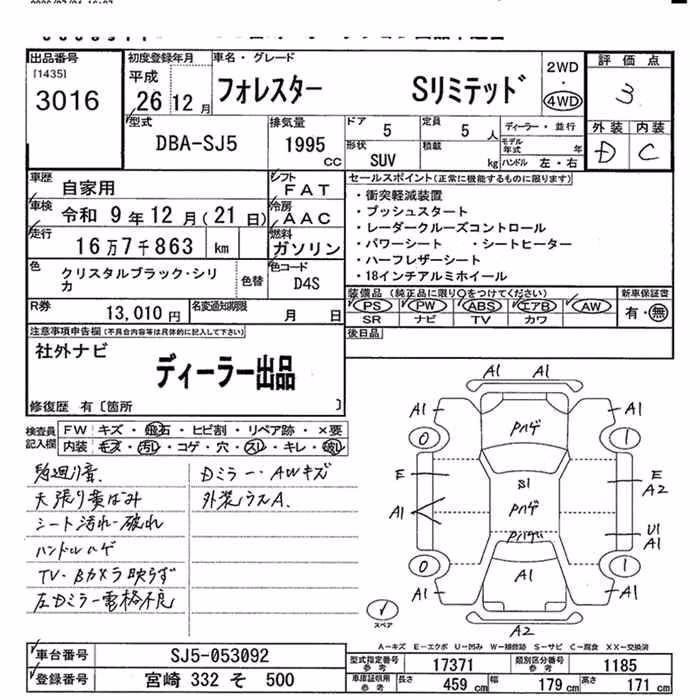 出品番号
[1435]
3016
初度登録年月
平成
26 12 月
車名・グレード
フォレスター Sリミテッド
2WD
・
4WD
評価点
3
外装 内装
D C
型式
DBA-SJ5
排気量
1995
CC
ドア
5
定員
5 人
形状
SUV
積載
kg
ディーラー・並行
モデル年式 年
ハンドル 左・右
車歴
自家用
シフト
FAT
車検 令和 9年12月(21日)
冷房
AAC
走行
16万7千863 km
燃料
ガソリン
色
クリスタルブラック・シリカ
色替
色コード
D4S
セールスポイント(正常に機能するものに限ります)
・衝突軽減装置
・プッシュスタート
・レーダークルーズコントロール
・パワーシート ・シートヒーター
・ハーフレザーシート
・18インチアルミホイール
装備品(純正品に限り○をつけてください)
PS PW ABS エアB AW
SR ナビ TV カワ
新車保証書
有・無
R券
13,010 円
名変通知期限
月 日
後日品
注意事項申告欄(不具合内容等は具体的に記入して下さい)
社外ナビ
ディーラー出品
修復歴 有〔箇所 〕
検査員記入欄
FW キズ・飛石・ヒビ割・リペア跡・×要
内装 キズ・汚れ・コゲ・穴・スレ・キレ・破れ
足廻り音
天張り黄ばみ
シート汚れ・破れ
ハンドルハゲ
TV・Bカメラ映らず
左Dミラー電格不良
Dミラー・AWキズ
外装ウスA.
A1 A1
A1 A1
Pハゲ
0 1
E E
A2
Pハゲ
A1
U1
A1
0 1
A1 A1 A1
A2
スペア
A－キズ E－エクボ U－凹み W－補修跡 S－サビ C－腐食 XX－交換済
車台番号 SJ5-053092
登録番号 宮崎 332 そ 500
型式指定番号 参考 17371
類別区分番号 参考 1185
車庫証明用 参考 長さ 459 cm 幅 179 cm 高さ 171 cm